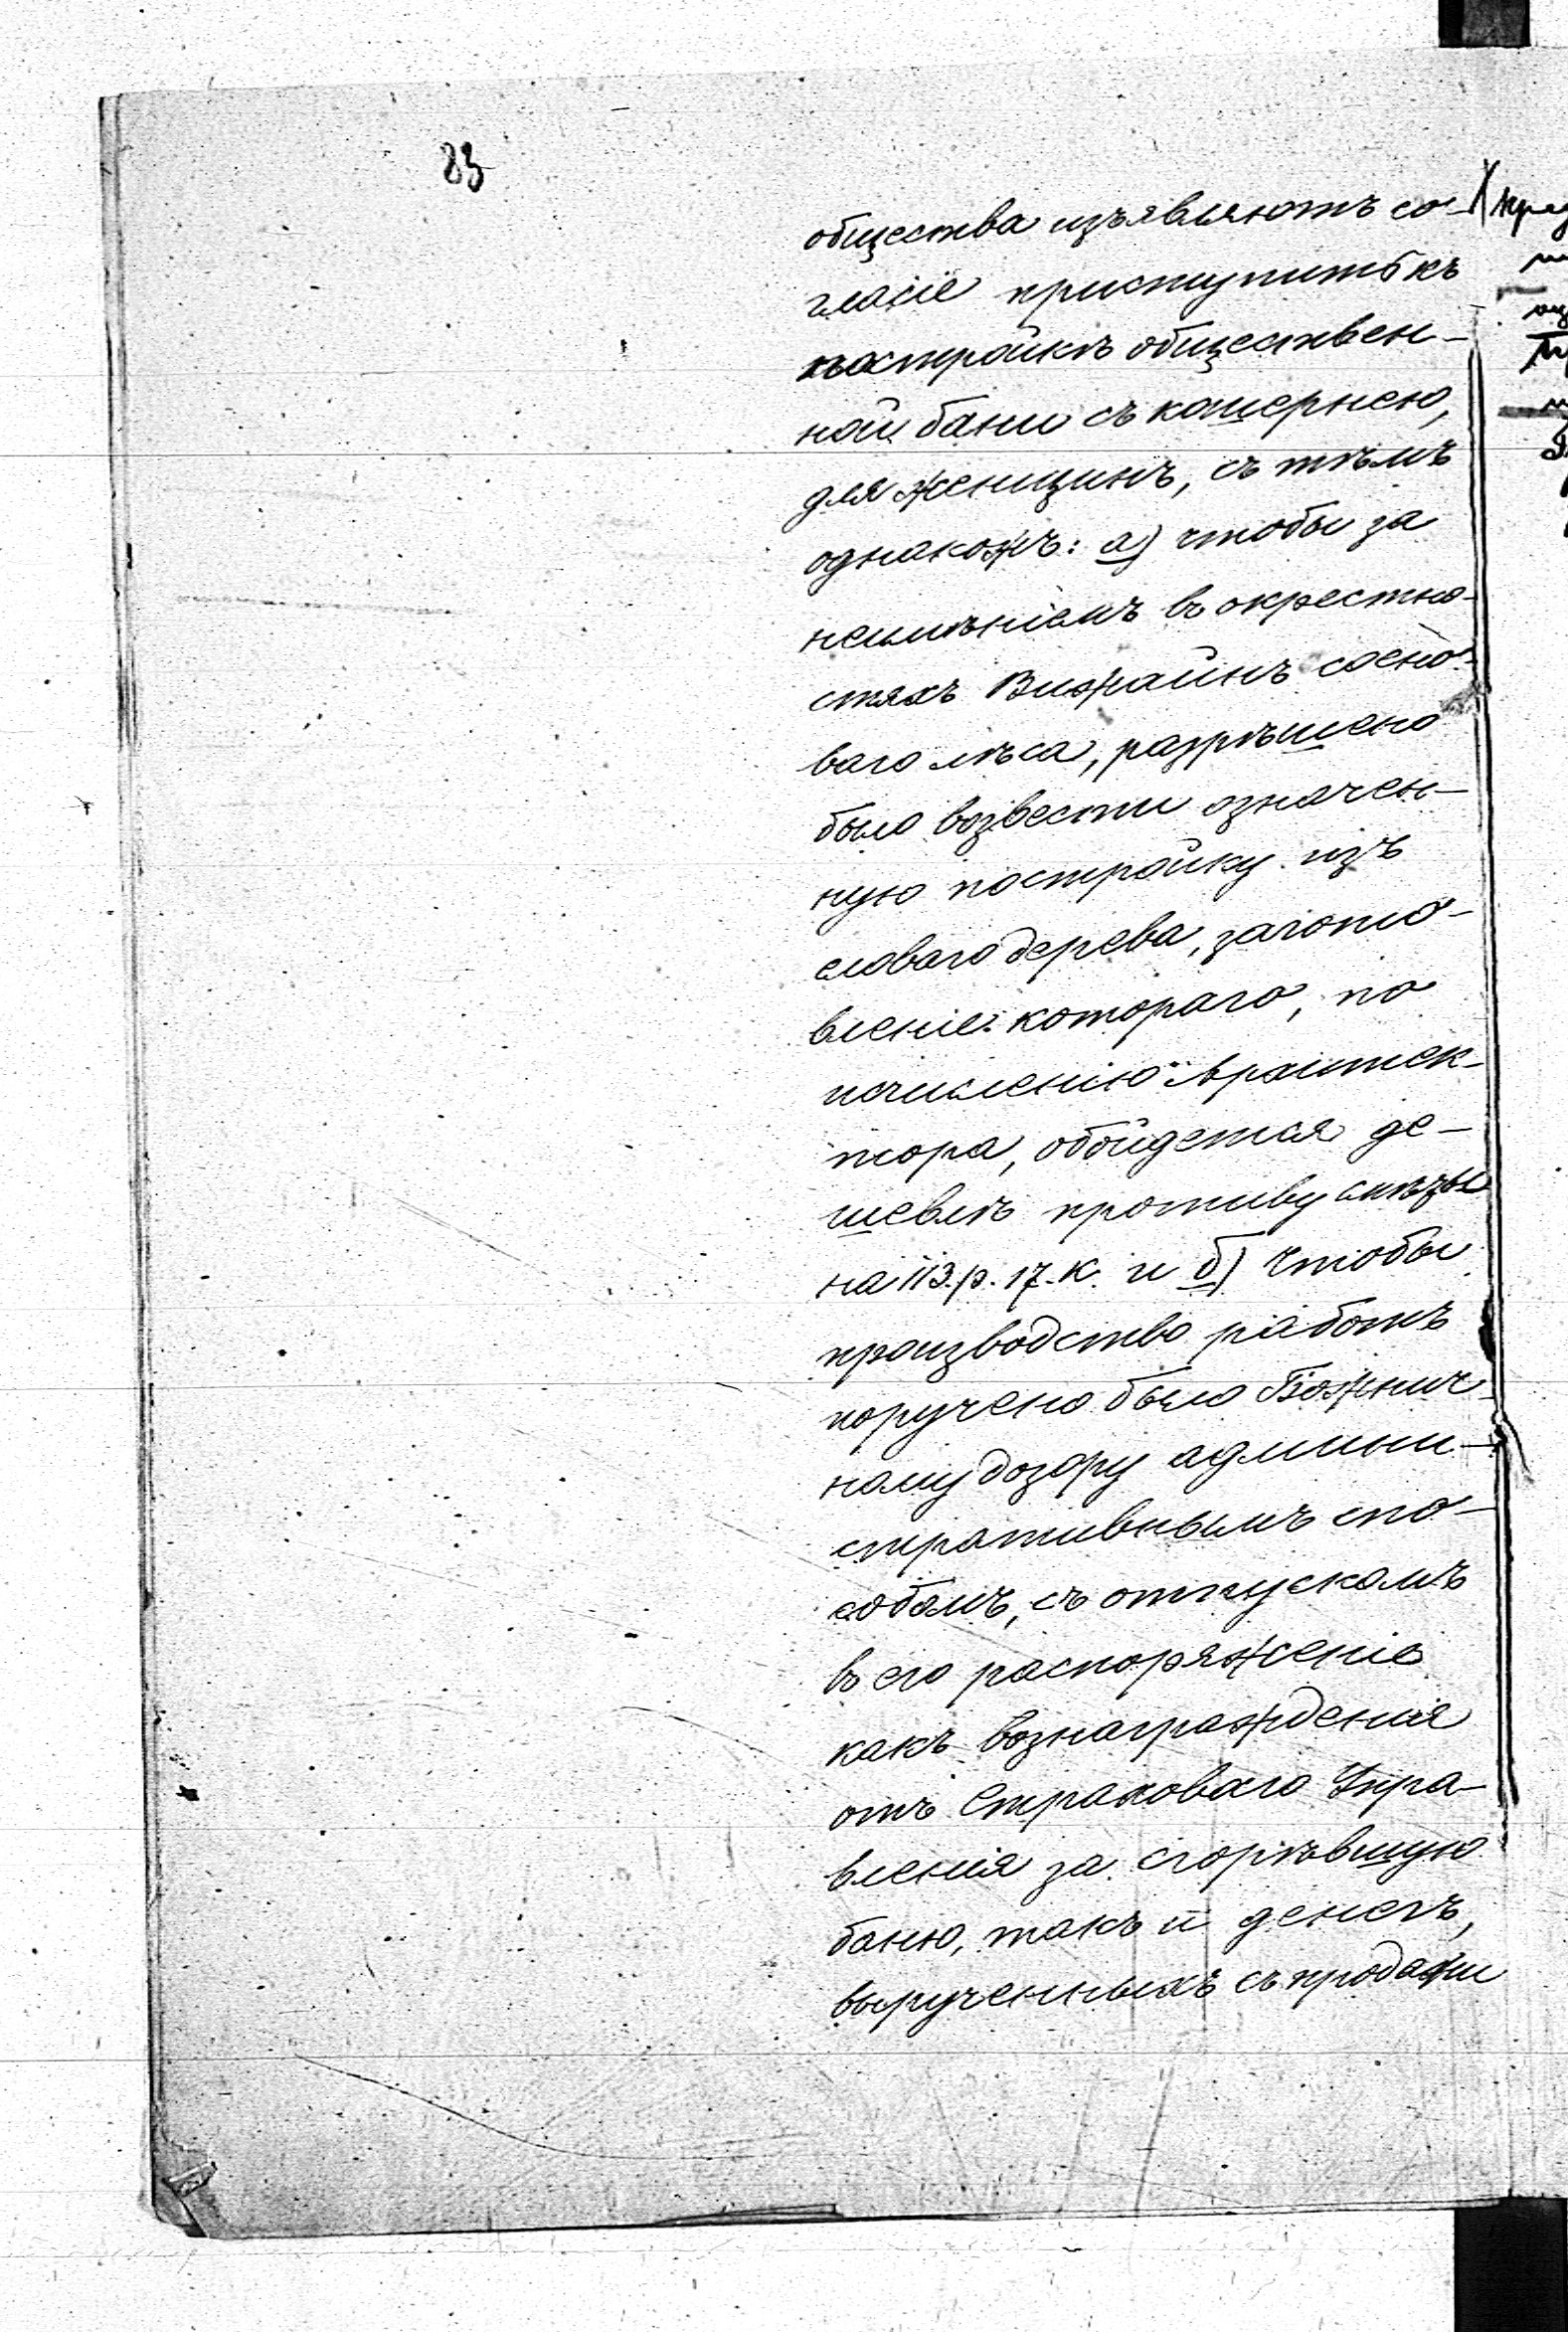 83
общества изъявляютъ со-
гласіе приступить къ
постройкѣ обществен-
ной бани съ кошернею,
для женщинъ, съ тѣмъ
однакожъ: а) чтобы за
неимѣніемъ въ окрестно-
стяхъ Вижайнъ сосно-
ваго лѣса, разрѣшено
было возвести означен-
ную постройку изъ
еловаго дерева, загото-
вленіе котораго, по
исчисленію Архитек-
тора, обойдется де-
шевлѣ противу смѣты
на 113.р. 17.к. и б) чтобы
производство работъ
поручено было Божнич-
ному дозору админи-
стративнымъ спо-
собомъ, съ отпускомъ
въ его распоряженіе
какъ вознагражденія
отъ Страховаго Упра-
вленія за сгорѣвшую
баню, такъ и денегъ,
вырученныхъ съ продажи